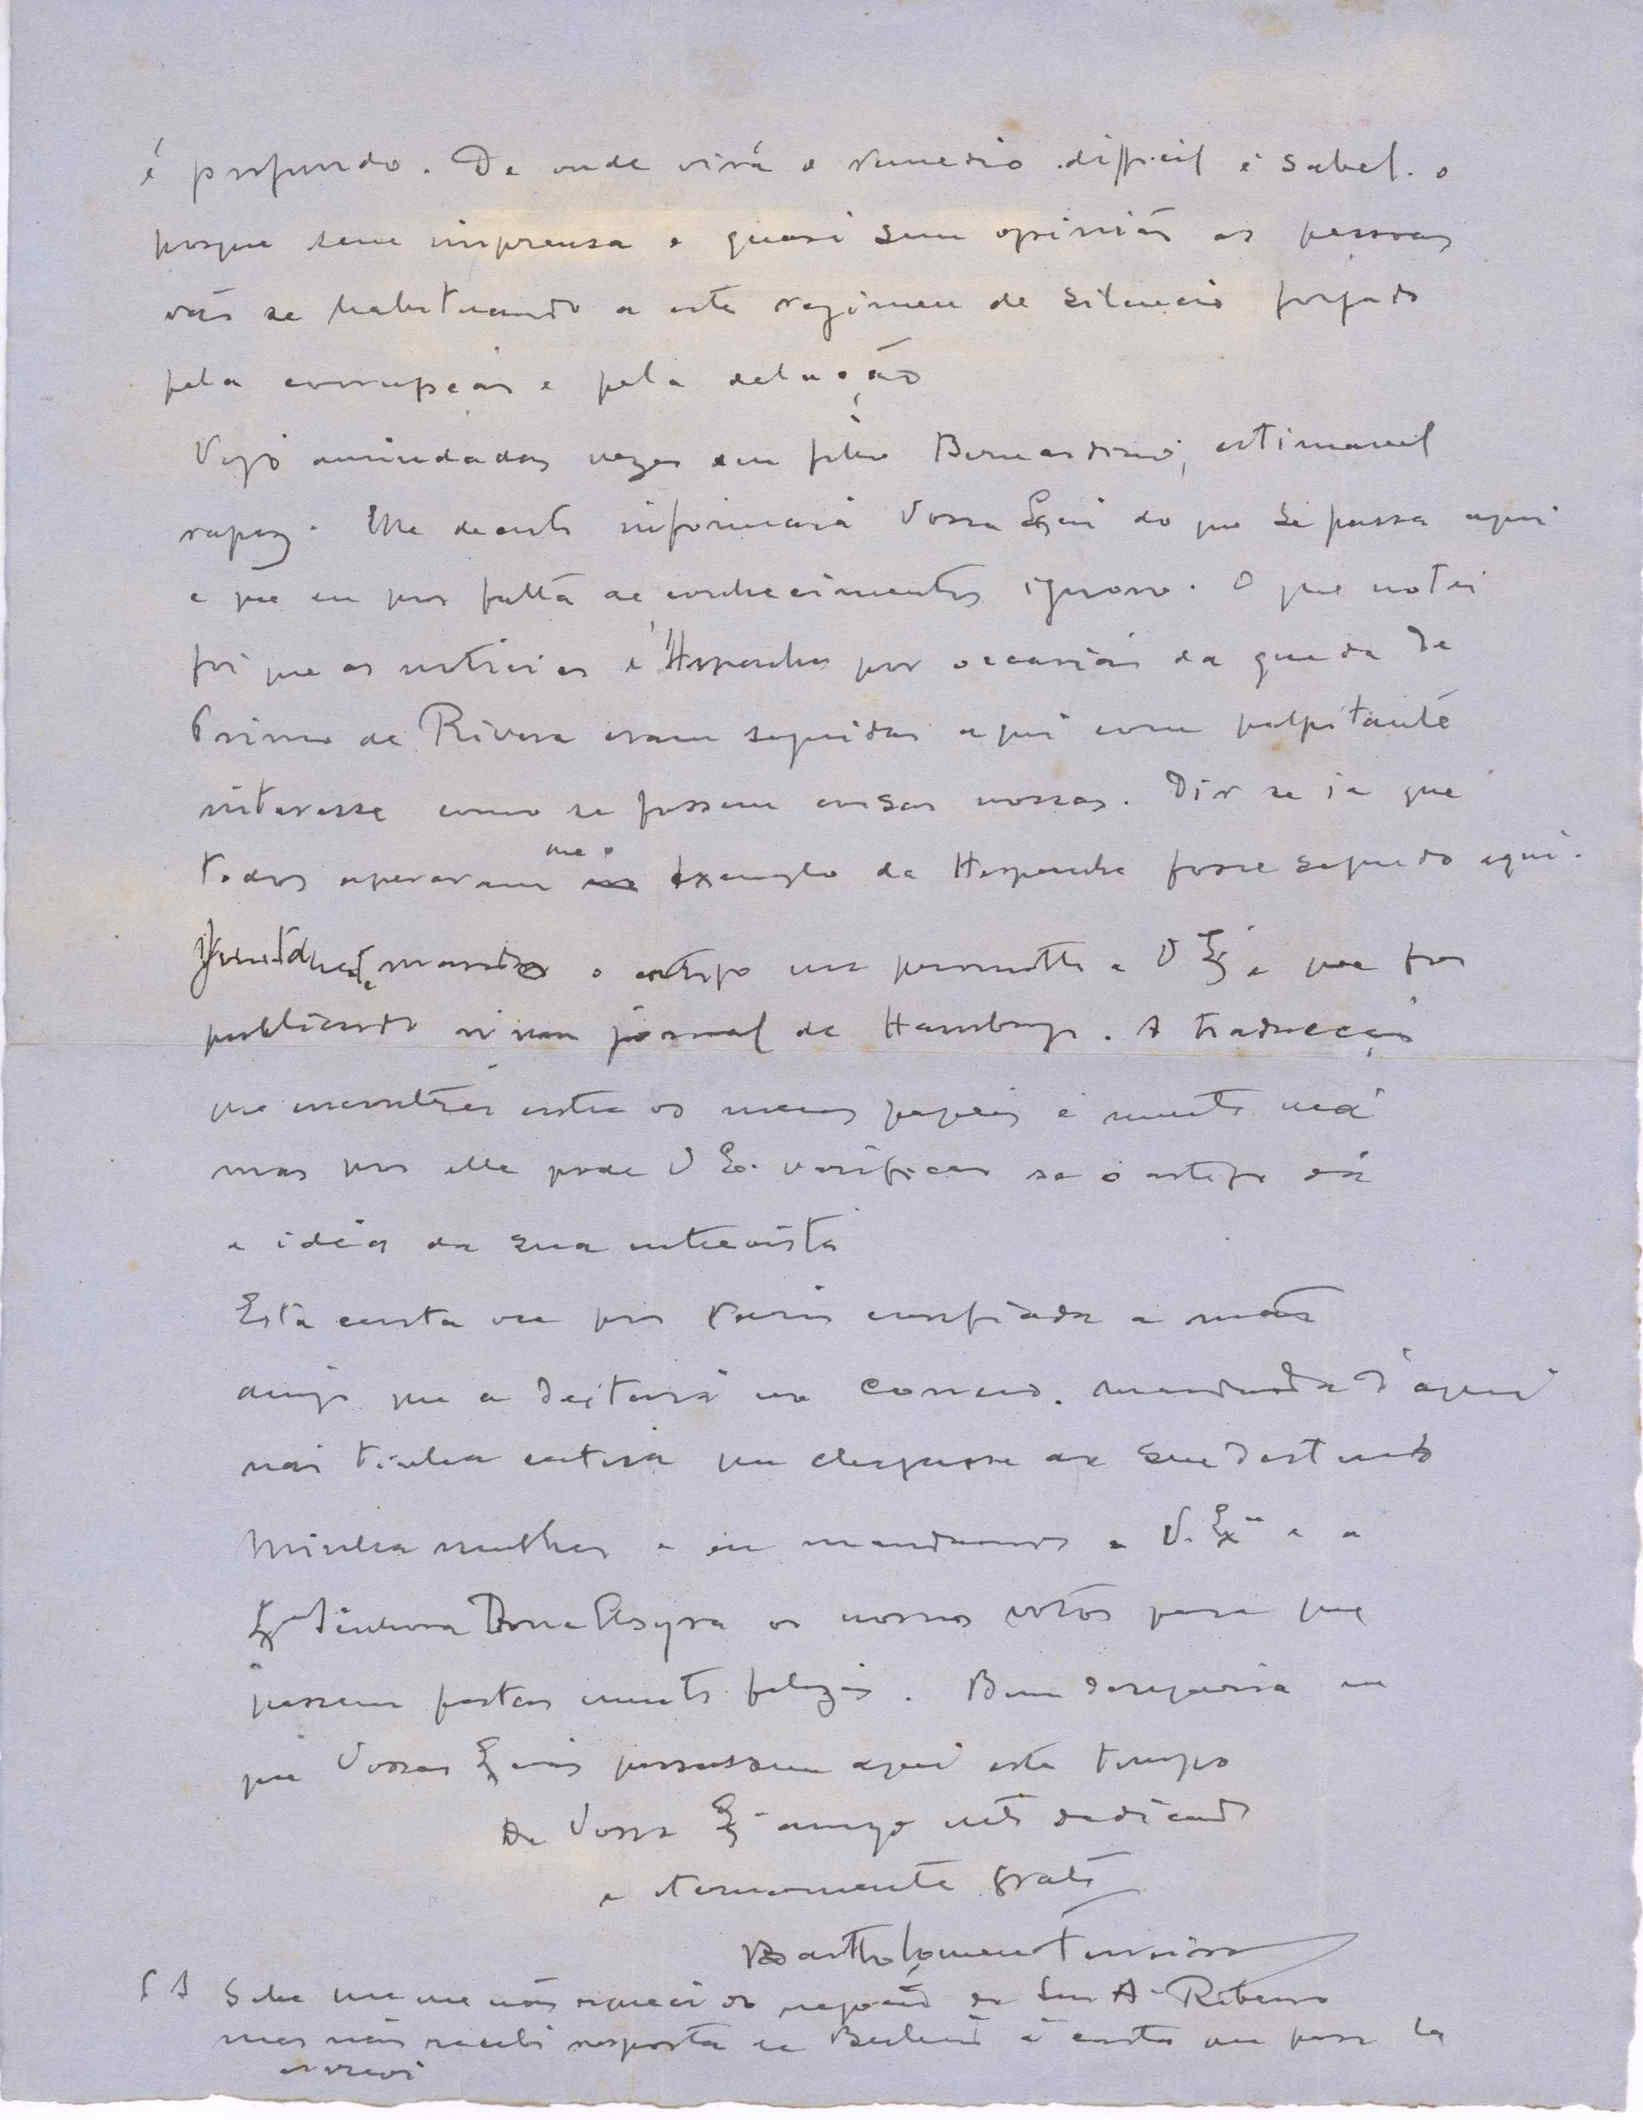 é profundo. De onde virá o remedio difficil é sabel-o
porque sem imprensa e quasi sem opinião as pessoas
vão se habituando a este regimen de silencio forjado
pela corrupção e pela delação
Vejo amiudadas vezes seu filho Bernardino, estimavel
rapaz. Elle decerto informará Vossa Excia do que se passa aqui
e que eu por falta de conhecimentos ignoro. O que notei
foi que as noticias d'Hespanha por occasião da queda de
Primo de Rivera eram seguidas aqui com palpitante
interesse como se fossem cousas nossas. Dir se ia que
todos esperavam que o exemplo da Hespanha fosse seguido aqui.
mando o artigo que prometti a V Exª e que foi
publicado n'um jornal de Hamburgo. A traducção
que encontrei entre os meus papeis é muito má
mas por ella pode V Ex. verificar se o artigo dá
a idéa da sua entrevista
Esta carta vae por Paris confiada a mão
amiga que a deitará no correio. mandada d'aqui
não tinha certeza que chegasse ao seu destino
Minha mulher e eu mandamos a V. Exª e a
Exª Senhora Dona Elzyra os nossos votos para que
passem festas muito felizes. Bem desejaria eu
que Vossas Excias passassem aqui este tempo
De Vossa Exª amigo mto dedicado
e eternamente grato
Bartholomeu Ferreira
P S Sabe que me não esqueci do negocio do Snr A. Ribeiro
mas não recebi resposta de Berlim á carta que para la
escrevi